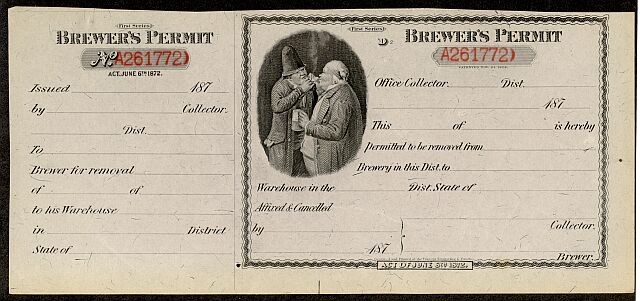 First Series
BREWER'S PERMIT
No. A261772
ACT, JUNE 6TH 1872.
Issued 187
by Collector.
Dist.
To
Brewer for removal
of of
to his Warehouse
in District
State of
First Series
BREWER'S PERMIT
A261772
Office Collector. Dist.
187
This of is hereby
permitted to be removed from
Brewery in this Dist. to
Warehouse in the Dist. State of
Affixed & Cancelled
by Collector.
187
Brewer.
ACT OF JUNE 6TH 1872.